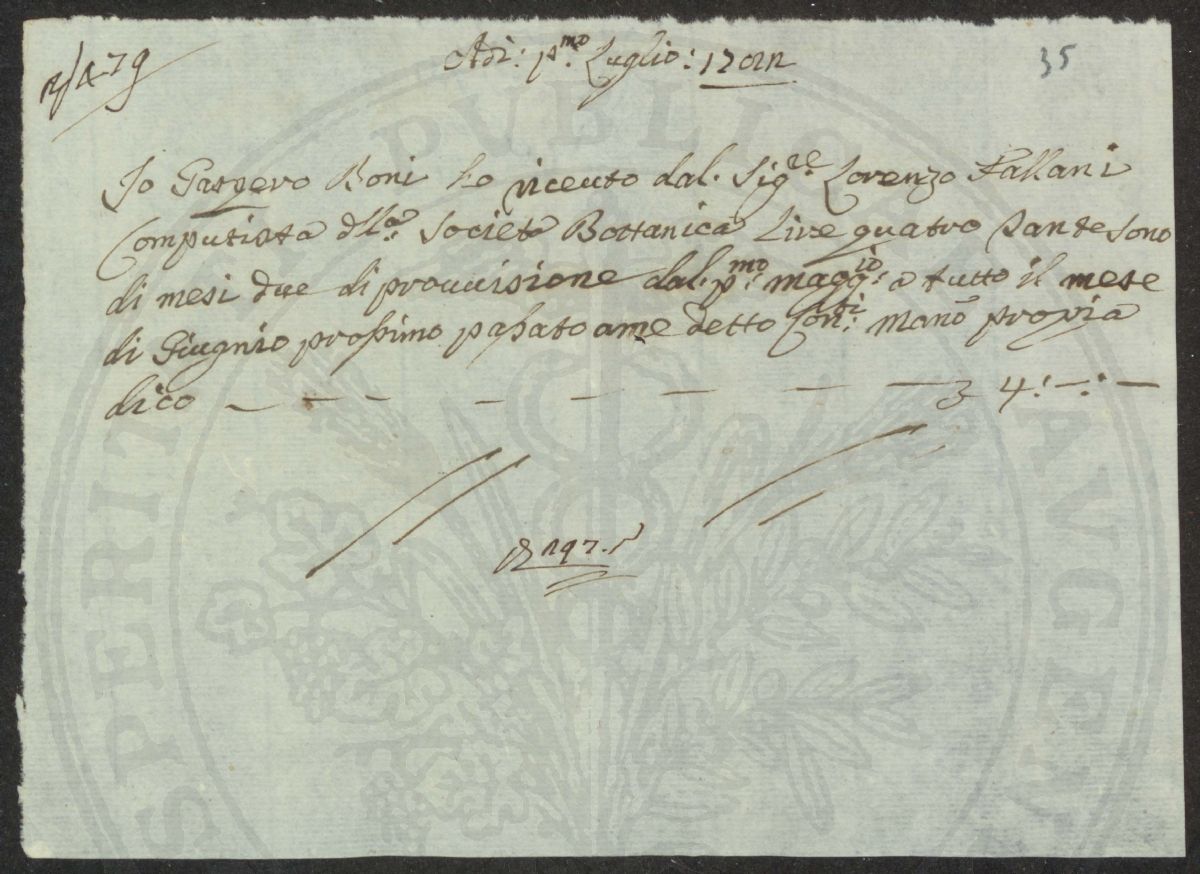 35
Adì: p.mo Luglio:
Io Gaspero Boni ho riceuto dal. Sig.re Lorenzo Fallani
Computista d'lla Società Bottanica Lire quatro tante sono
di mesi due di prouuisione dal. p.mo magg.io a tutto il mese
di Giugnio prossimo passato a me detto Con.ti mano propria
dico — — — — — — — — 4:—:—
PUBLICA
SPERIT
AVGE